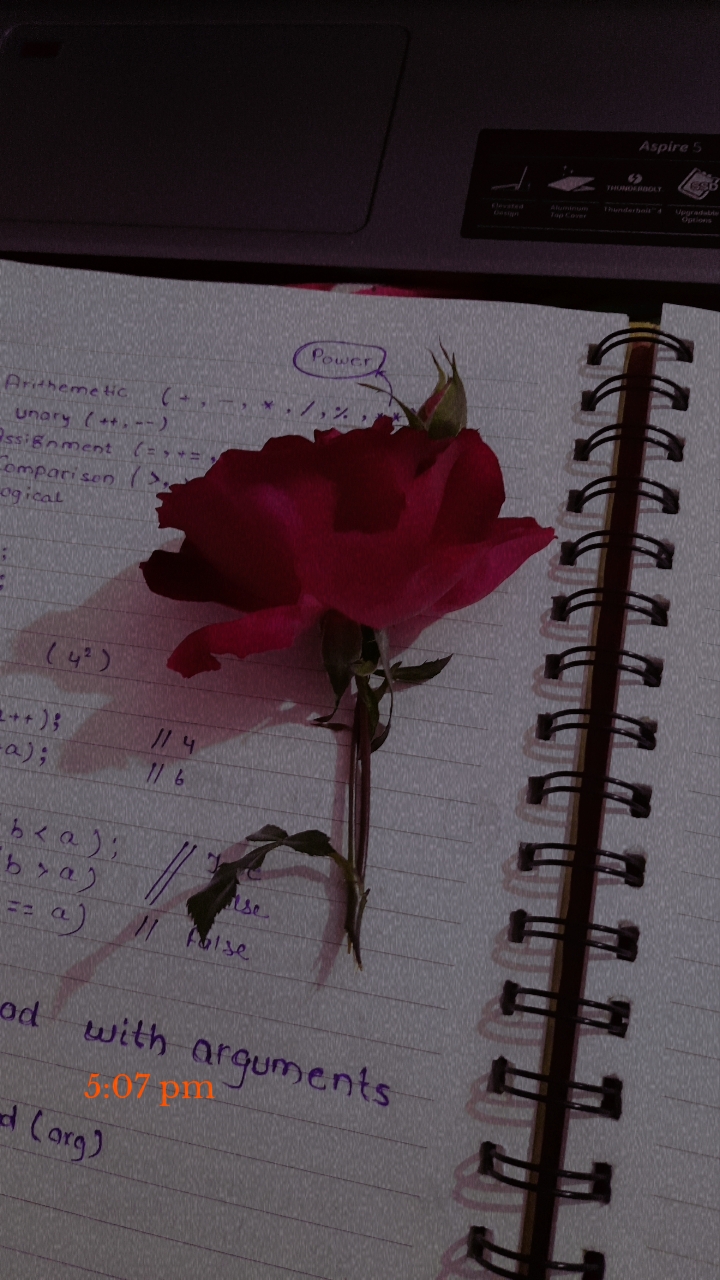 Aspire 5
THUNDERBOLT
Elevated Design
Aluminum Top Cover
Thunderbolt™ 4
Upgradable Options
Power
Arithemetic (+, -, *, /, %, **
unary (++, --)
Assignment (=, +=,
Comparison (>,
ogical
;
;
(4²)
++);
a);
// 4
// 6
b < a);
b > a) //
== a) // false
od with arguments
5:07 pm
d (arg)